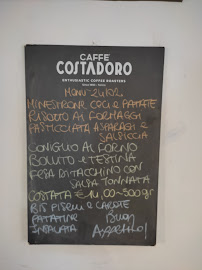 CAFFÈ
COSTADORO
ENTHUSIASTIC COFFEE ROASTERS
MENU 24/02
MINESTRONE CECI E PATATE
RISOTTO AI FORMAGGI
PASTICCIATA ASPARAGI E
SALSICCIA
CONIGLIO AL FORNO
BOLLITO E TESTINA
FESA DI TACCHINO CON
SALSA TONNATA
COSTATA €
500gr
BIS PISELLI E CAROTE
PATATINE Buon
INSALATA Appetito!